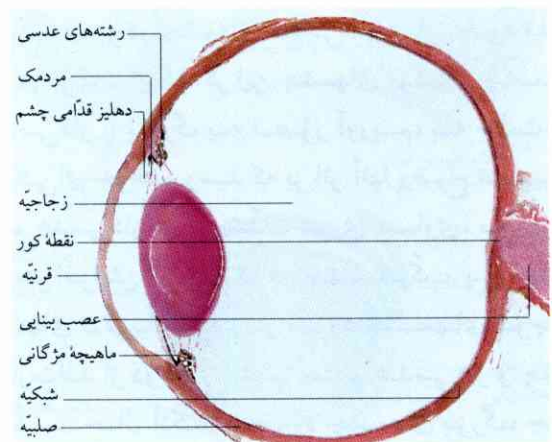 رشته‌های عدسی
مردمک
دهلیز قدّامی چشم
زجاجیّه
نقطهٔ کور
قرنیّه
عصب بینایی
ماهیچهٔ مژگانی
شبکیّه
صلبیّه